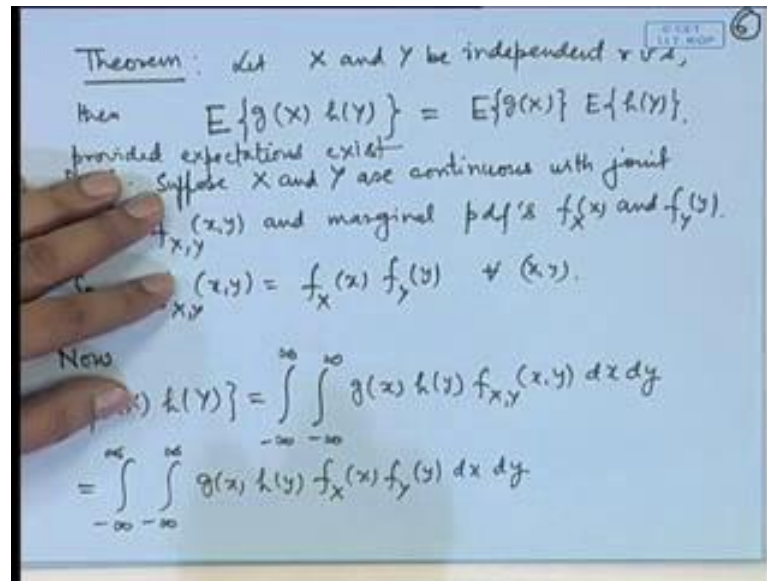 6
Theorem: Let X and Y be independent r v's,
then E{g(X) h(Y)} = E{g(X)} E{h(Y)}.
provided expectations exist
Suppose X and Y are continuous with joint
f_{X,Y}(x,y) and marginal pdf's f_X(x) and f_Y(y).
f_{X,Y}(x,y) = f_X(x) f_Y(y) ∀ (x,y).
Now
h(Y)} = ∫_{-∞}^{∞} ∫_{-∞}^{∞} g(x) h(y) f_{X,Y}(x,y) dx dy
= ∫_{-∞}^{∞} ∫_{-∞}^{∞} g(x) h(y) f_X(x) f_Y(y) dx dy